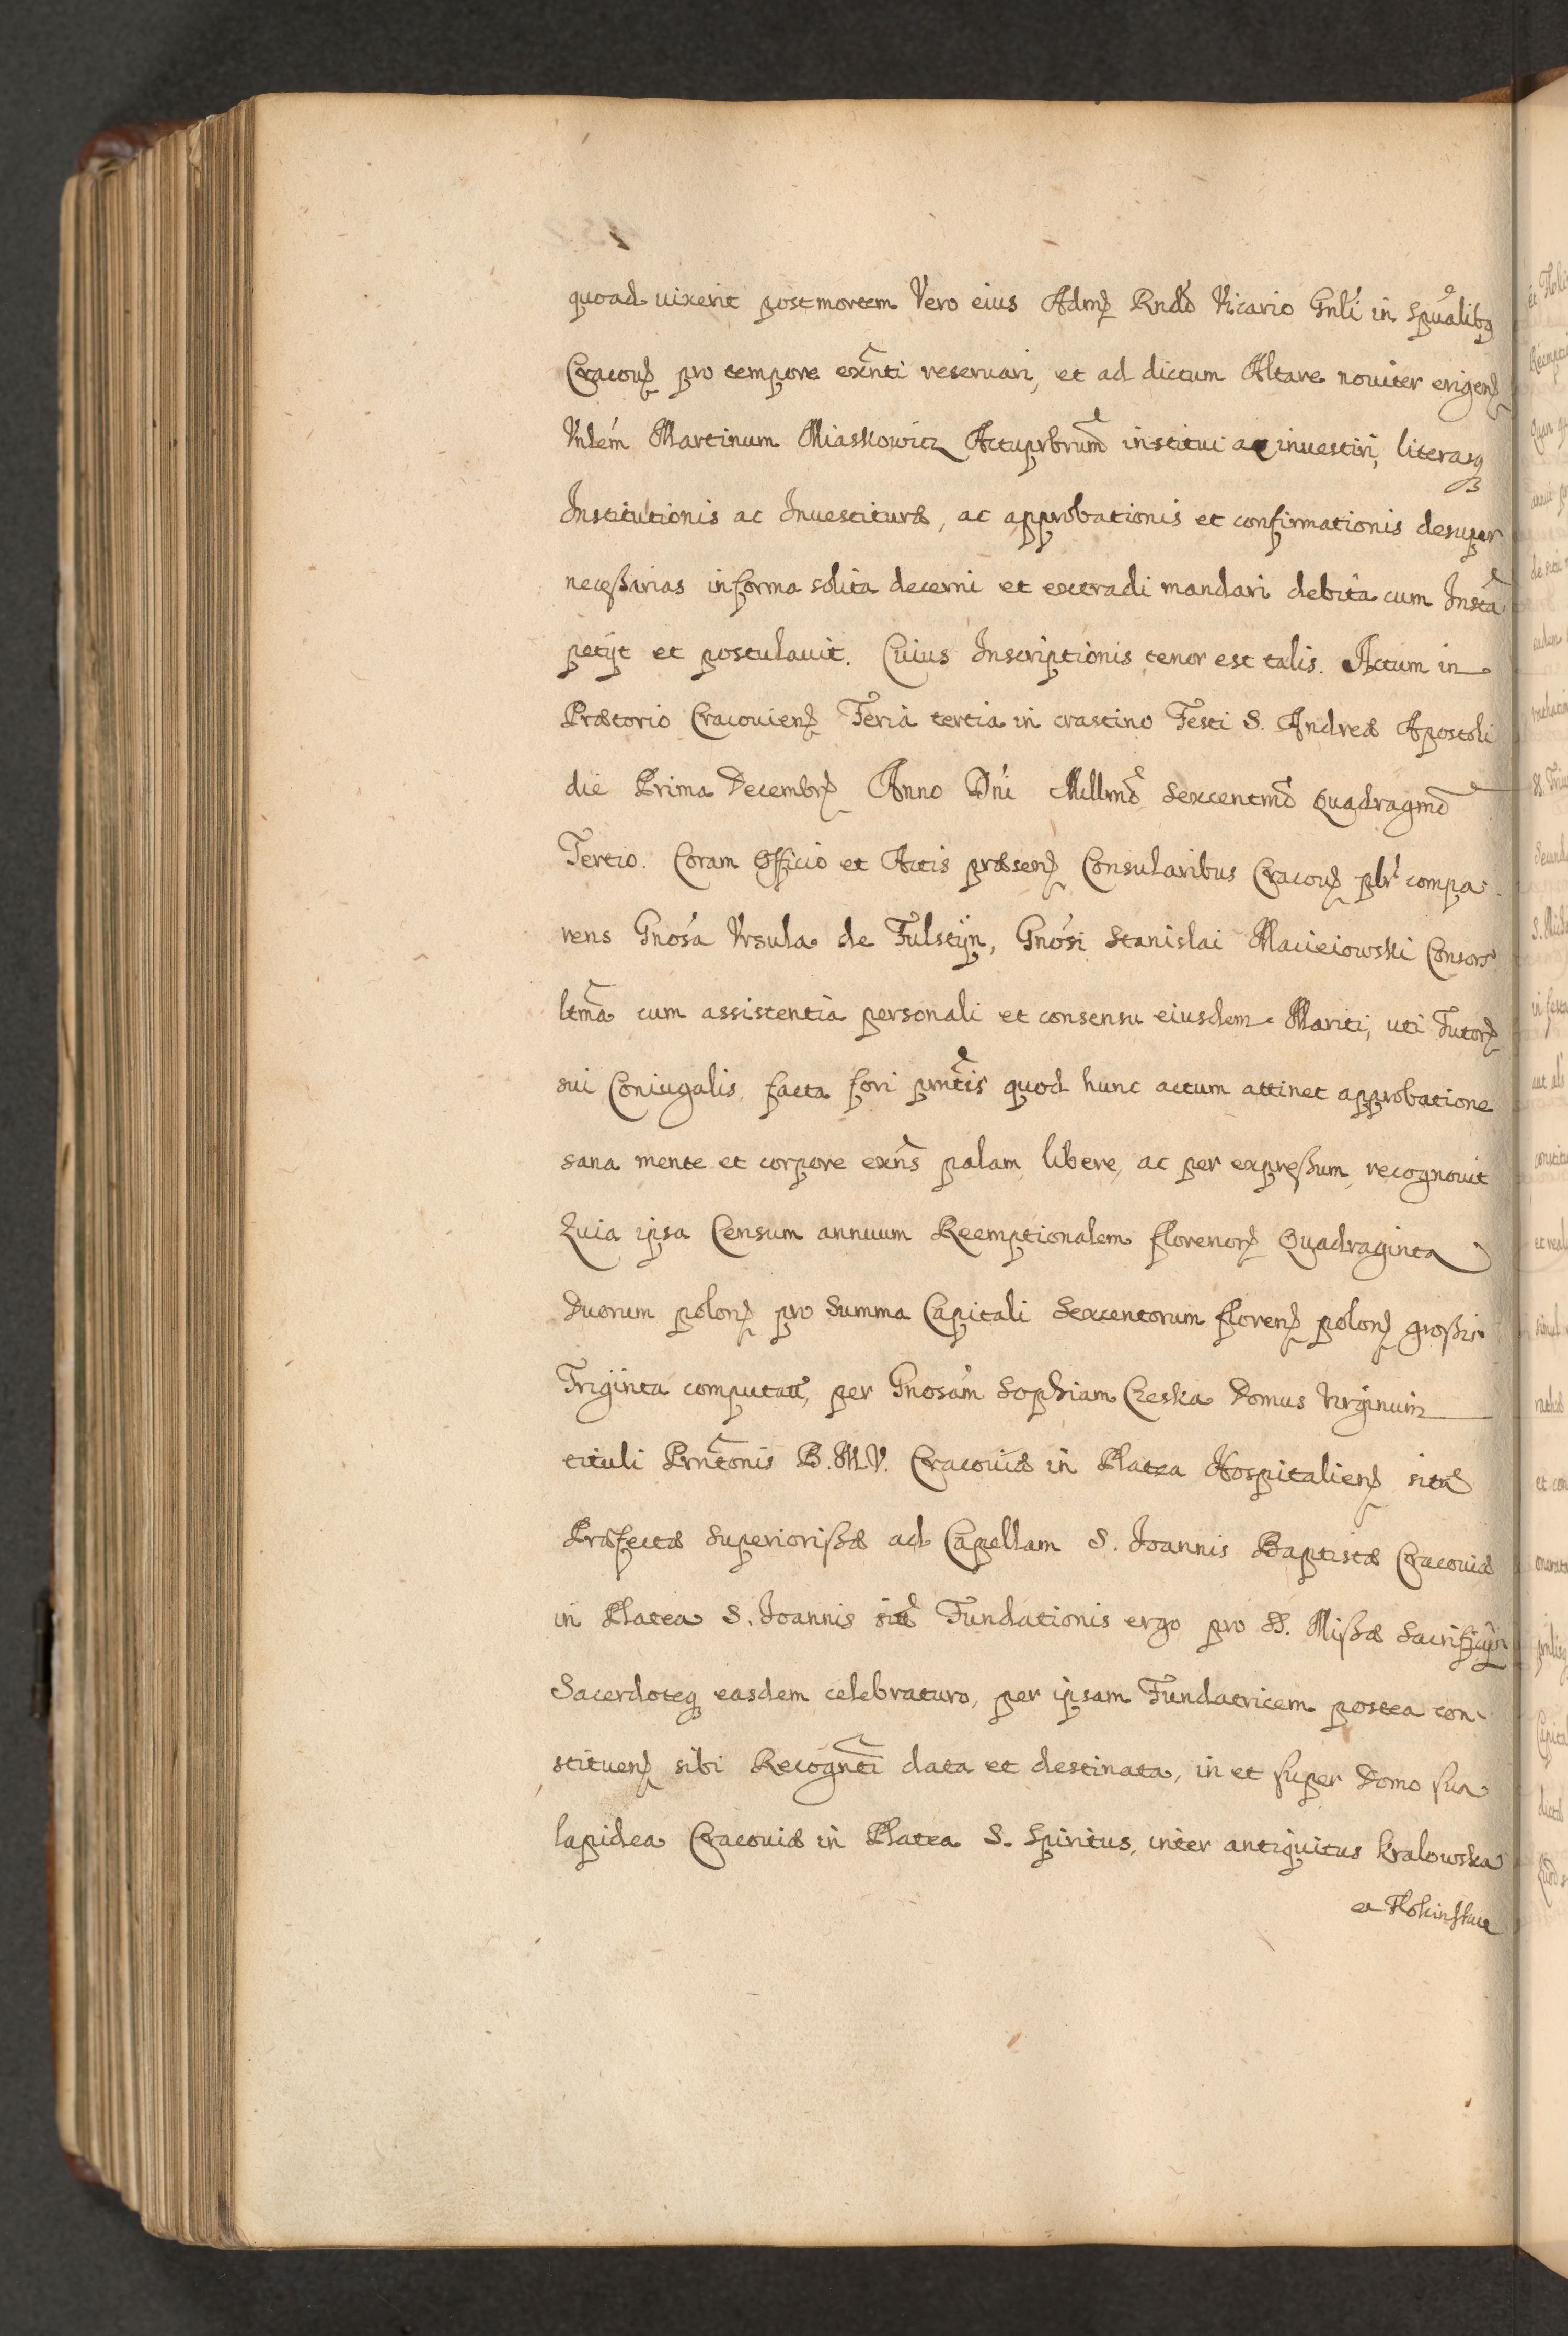 quoad uixerit post mortem Vero eius Admꝝ Rndo Vicario Gnli in Spualibꝫ
Cracouꝝ pro tempore exnti reseruari, et ad dictum Altare nouiter erigenꝝ
Vnlem Martinum Miaskowicz Actuprbrum institui ac inuestiri, literasqꝫ
Institutionis ac Inuestituræ, ac approbationis et confirmationis desuper
necęßarias in forma solita decerni et extradi mandari debita cum Insta
petÿt et postulauit. Cuius Inscriptionis tenor est talis. Actum in
Prætorio Cracouienꝝ Feria tertia in crastino Festi S. Andreæ Apostoli
die Prima Decembrꝝ Anno Dni Millmo Sexcentmo Quadragmo
Tertio. Coram Officio et Actis præsenꝝ Consularibus Cracouꝝ plr compa-
rens Gnosa Vrsula de Fulstÿn, Gnosi Stanislai Macieiowski Consors
ltma cum assistentia personali et consensu eiusdem Mariti, uti Tutorꝝ
sui Coniugalis, facta fori prntis quod hunc actum attinet approbatione
sana mente et corpore exns palam, libere, ac per expreßum, recognouit
Quia ipsa Censum annuum Reemptionalem florenorꝝ Quadraginta
Duorum polonꝝ pro Summa Capitali Sexcentorum florenꝝ polonꝝ großis
Triginta computatt, per Gnosam Sophiam Czeska Domus Virginum
tituli Prntonis B. M. V. Cracouiæ in Platea Hospitalienꝝ sitæ
Præfectæ Superiorißæ ad Capellam S. Joannis Baptistæ Cracouiæ
in Platea S. Joannis sitæ Fundationis ergo pro SS. Mißæ Sacrificijs
Sacerdoteqꝫ easdem celebraturo, per ipsam Fundatricem postea con-
stituenꝝ sibi Recognti data et destinata, in et super Domo sua
lapidea Cracouiæ in Platea S. Spiritus, inter antiquitus Kralowska
et